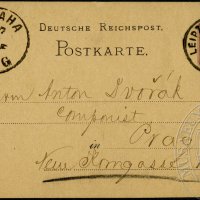 DEUTSCHE REICHSPOST.
POSTKARTE.
AHA
G
LEIP
Anton Dvořák
Componist
in Prag
Neue Korngasse